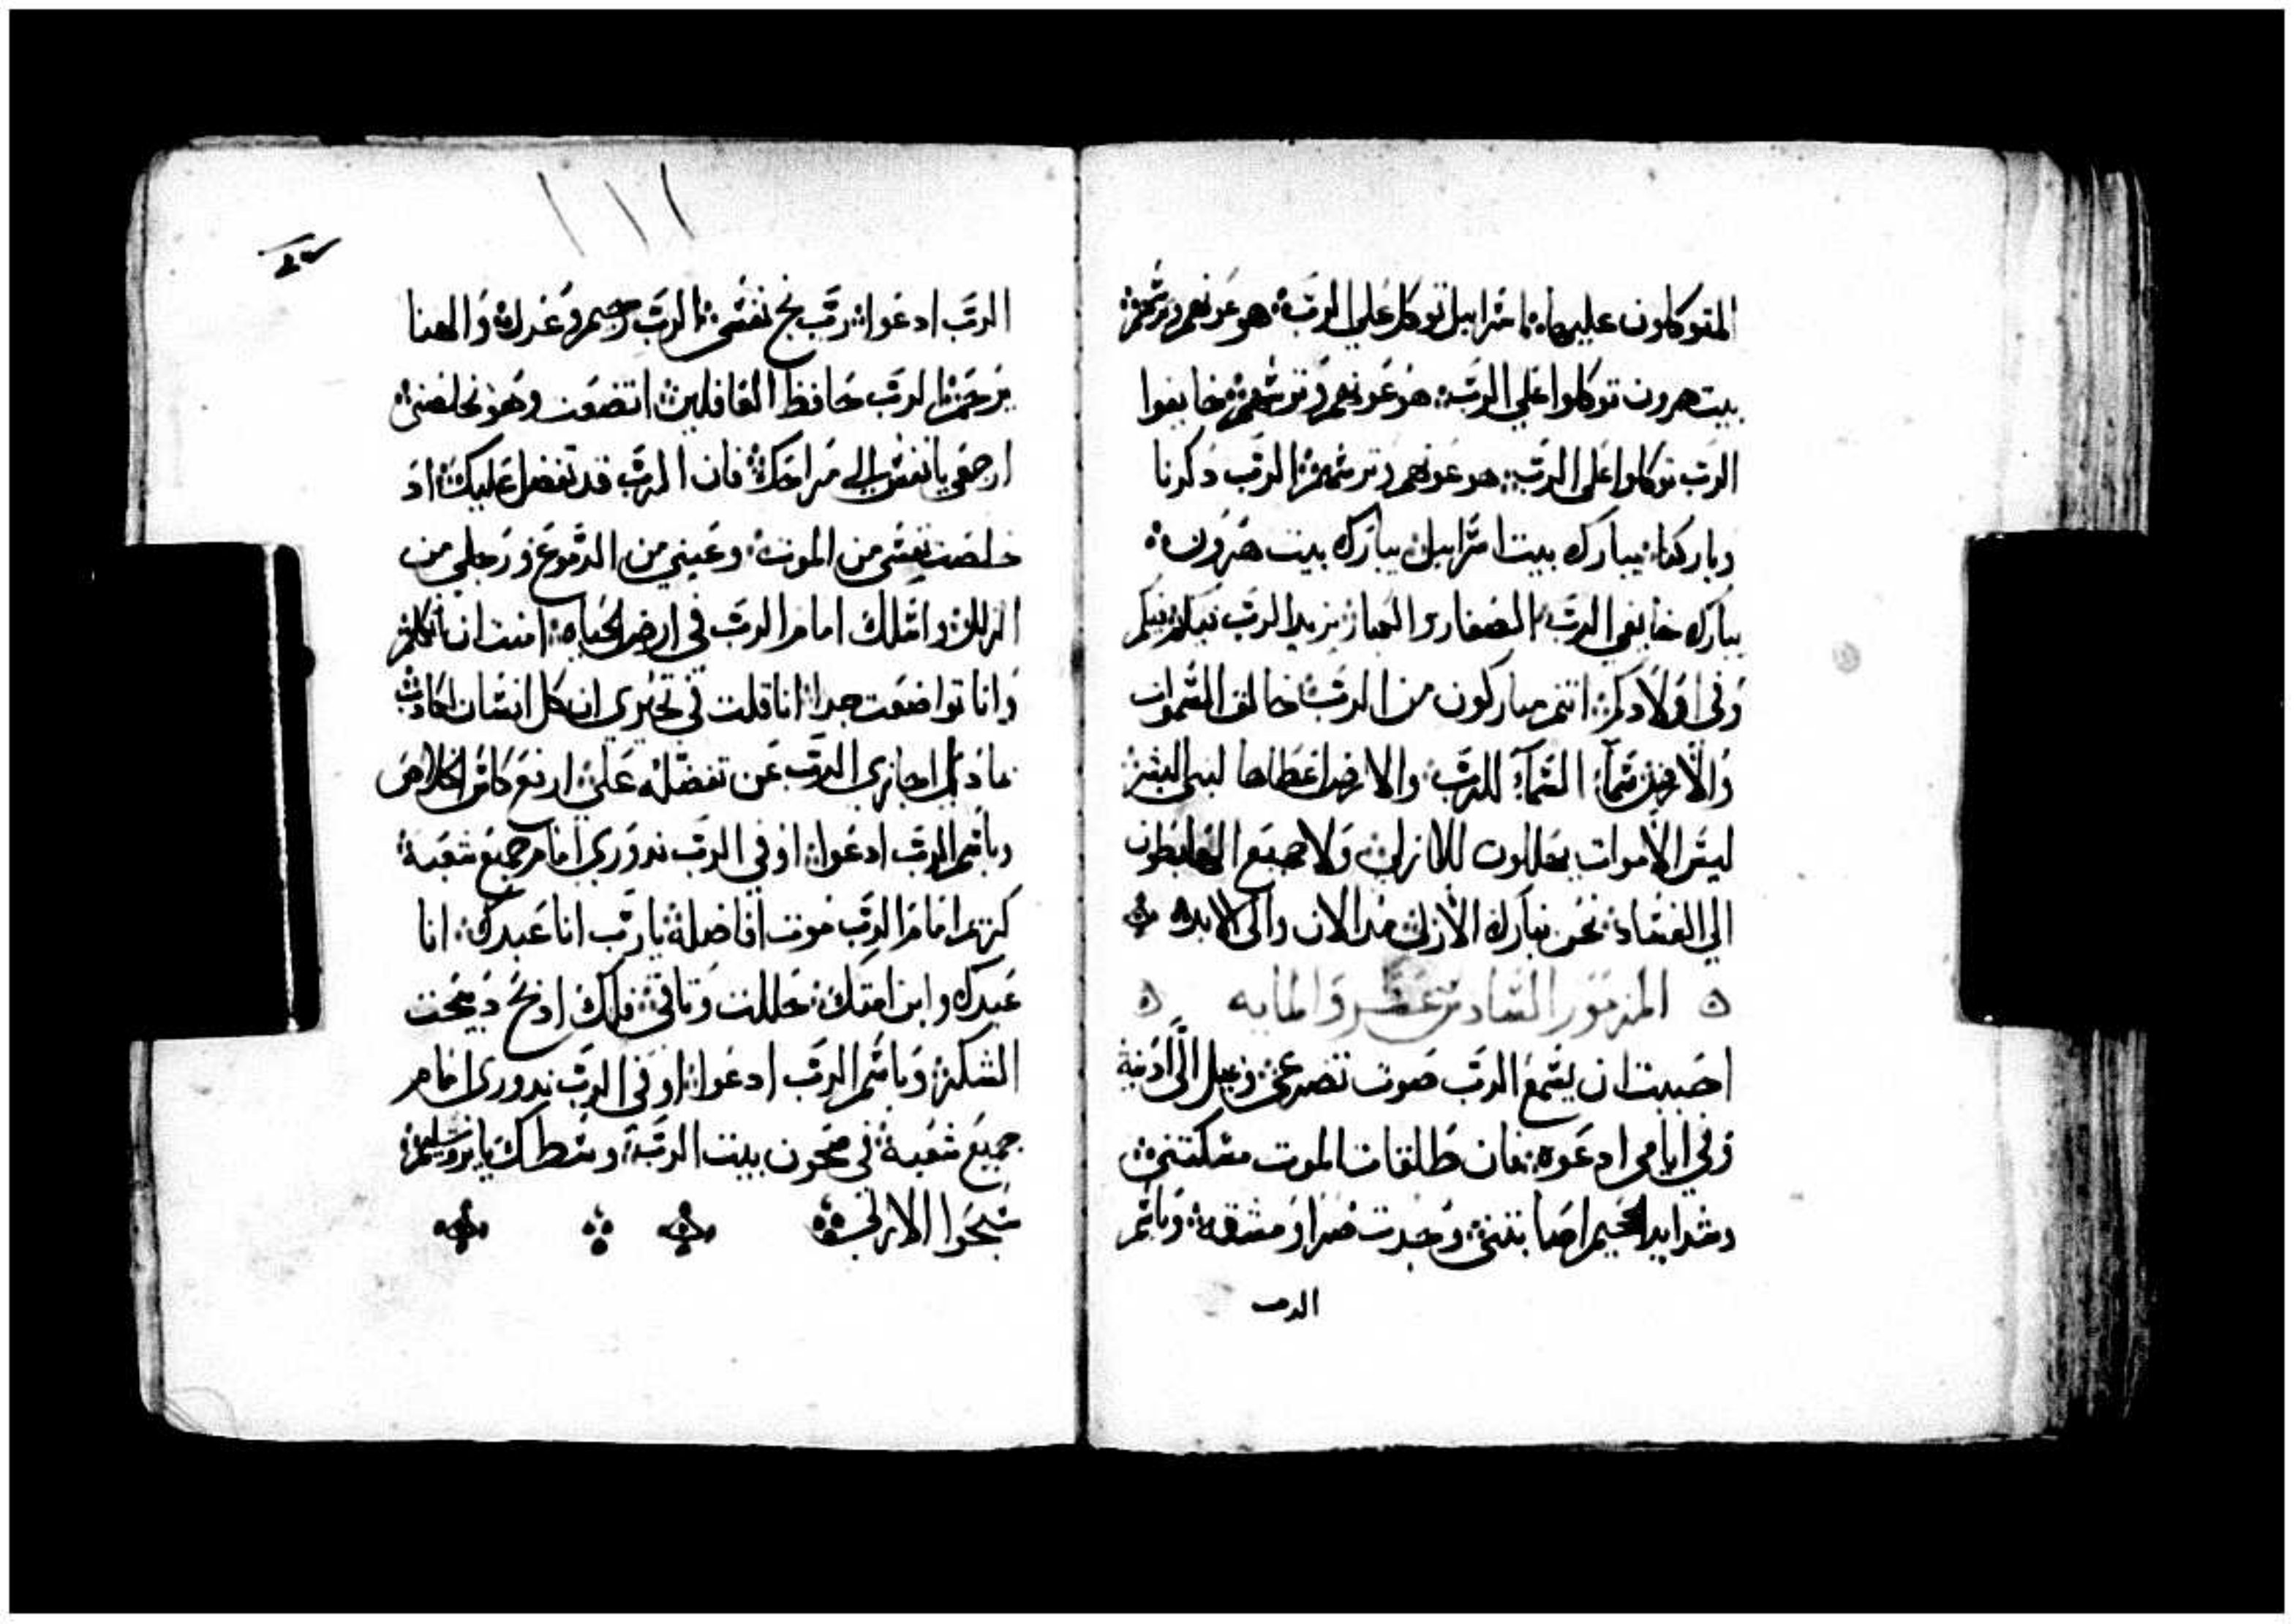 المتوكلون عليها: اسرايل توكل على الرب: هو عونهم وترسهم:
بيت هرون توكلوا على الرب: هو عونهم وترسهم: خايفوا
الرب توكلوا على الرب: هو عونهم وترسهم: الرب دكرنا
وباركنا: يبارك بيت اسرايل: يبارك بيت هرون:
يبارك خايفي الرب: الصغار و الكبار: يزيد الرب عليكم: عليكم
وفي اولادكم: انتم مباركون من الرب: خالق السموات
والارض: سماء السماء للرب: والارض اعطاها لبني البشر:
ليس الاموات يهللون للازلي: ولا جميع الهابطون
الى
نحن نبارك الازلي: مند الان والى الابد:
المزمور السادس عشر والمايه
احببت ان يسمع الرب صوت تضرعي: ويميل الي ادنه
وفي ايامي ادعوه: فان طلقات الموت مسكتني:
وشدايد الجحيم اصابتني: وجدت ضرا ومشقه: وباسم
الرب
الرب ادعوا: رب نج نفسي: الرب رحيم وعدل: والهنا
يرحم: الرب حافظ الغافلين: اتضعت وهو نخلصني:
ارجعي يا نفس الى مراحك: فان الرب قد تفضل عليك: اد
خلصت نفسي من الموت: وعيني من الدموع: ورجلي من
الزلل: واسلك امام الرب في ارض الحياه: امنت ان اتكلم:
وانا تواضعت جدا: انا قلت في تحيري ان كل انسان كادب:
مادا اجازي الرب عن تفضله علي: ارفع كاس الخلاص
وباسم الرب ادعوا: اوفي الرب ندوري امام جميع شعبه:
كريم امام الرب موت افاضله: يا رب انا عبدك: انا
عبدك وابن امتك: حللت وثاقي: فلك ادبح دبيحت
الشكر: وباسم الرب ادعوا: اوفي الرب ندوري امام
جميع شعبه: في صحون بيت الرب: وسطك يا يروسليم:
سبحوا الازلي: